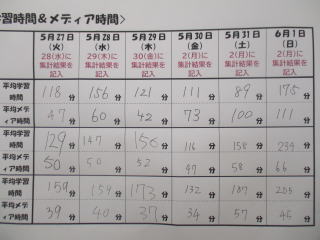 習時間＆メディア時間>
5月27日（火） 5月28日（水） 5月29日（木） 5月30日（金） 5月31日（土） 6月1日（日）
28(水)に集計結果を記入 29(木)に集計結果を記入 30(金)に集計結果を記入 2(月)に集計結果を記入 2(月)に集計結果を記入 2(月)に集計結果を記入
平均学習時間 118分 156分 121分 111分 89分 175分
平均メディア時間 47分 60分 42分 73分 100分 111分
平均学習時間 129分 147分 156分 116分 158分 234分
平均メディア時間 50分 50分 52分 47分 58分 66分
平均学習時間 159分 154分 173分 132分 187分 205分
平均メディア時間 39分 40分 37分 34分 57分 45分